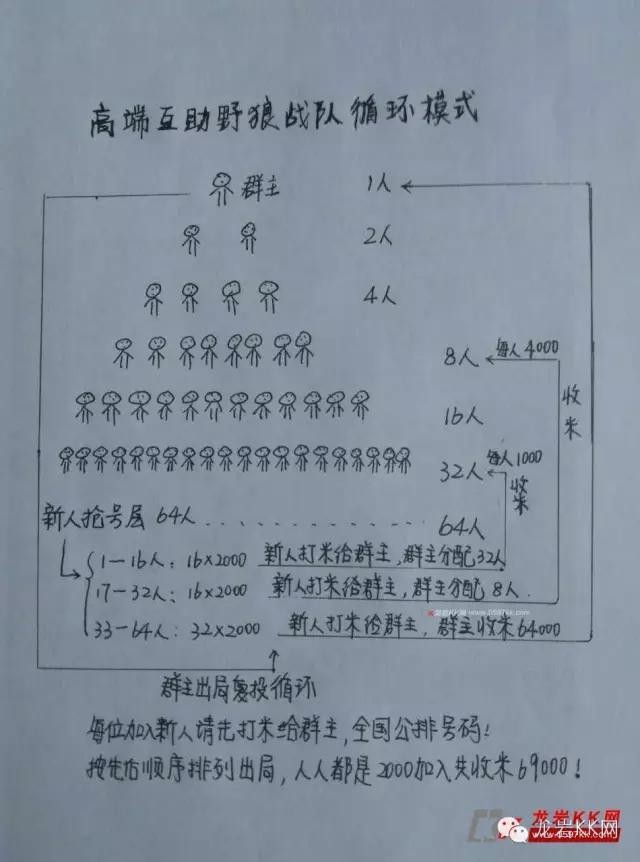 高端互助野狼战队循环模式
群主 1人
2人
4人
8人 每人4000
16人
收米
32人 每人1000
收米
新人抢号层 64人 64人
1-16人: 16×2000 新人打米给群主,群主分配32人
17-32人: 16×2000 新人打米给群主,群主分配 8人.
K 龙岩KK网 www.0597kk.com
33-64人: 32×2000 新人打米给群主,群主收米64000
群主出局复投循环
每位加入新人请先打米给群主,全国公排号码!
按先后顺序排列出局,人人都是2000加入共收米69000!
龙岩KK网
龙岩KK网
www.0597KK.com